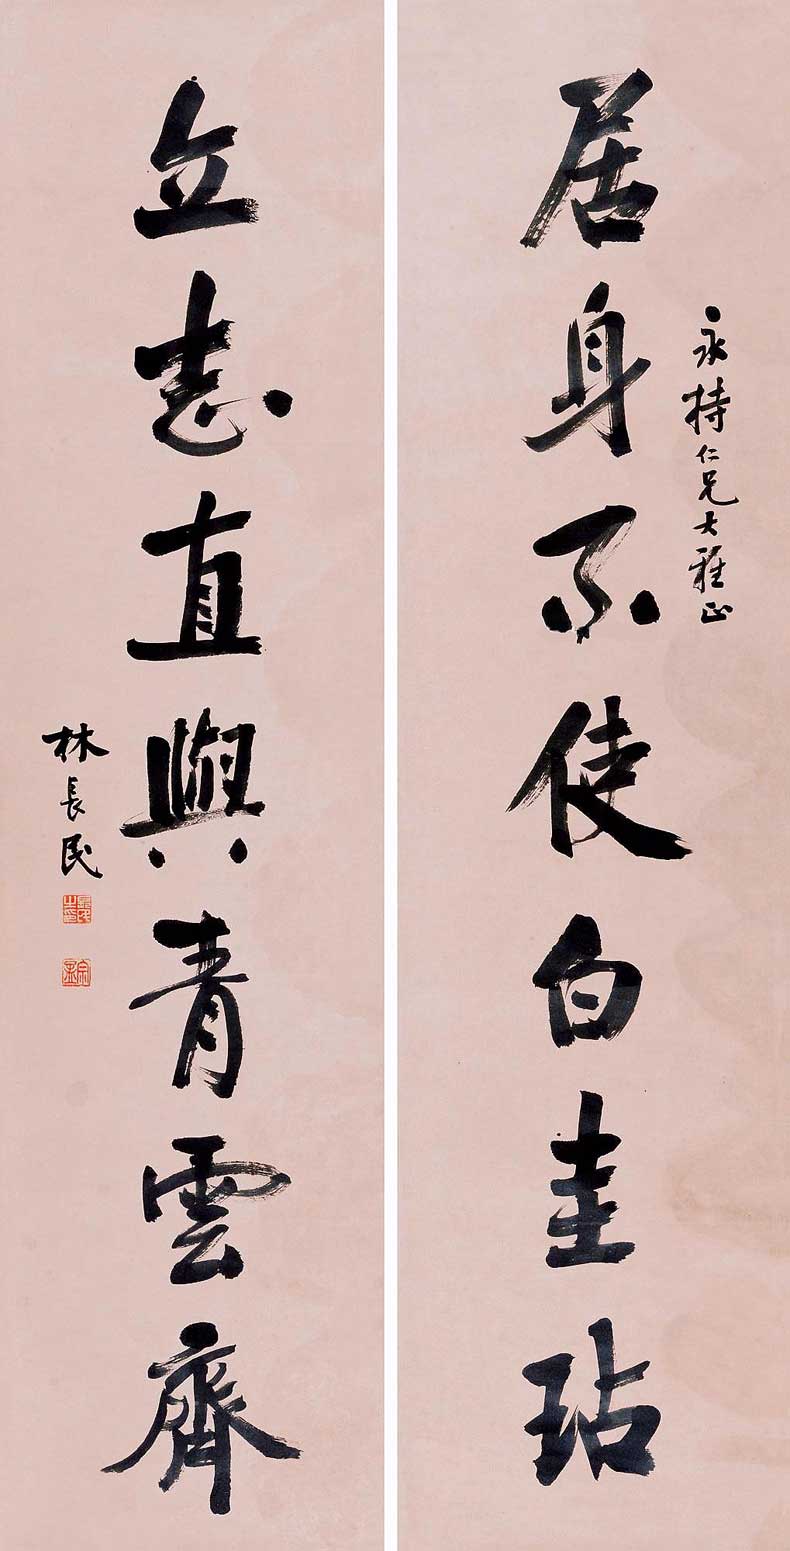 居身不使白圭玷
永持仁兄大雅正
立志直與青雲齊
林長民